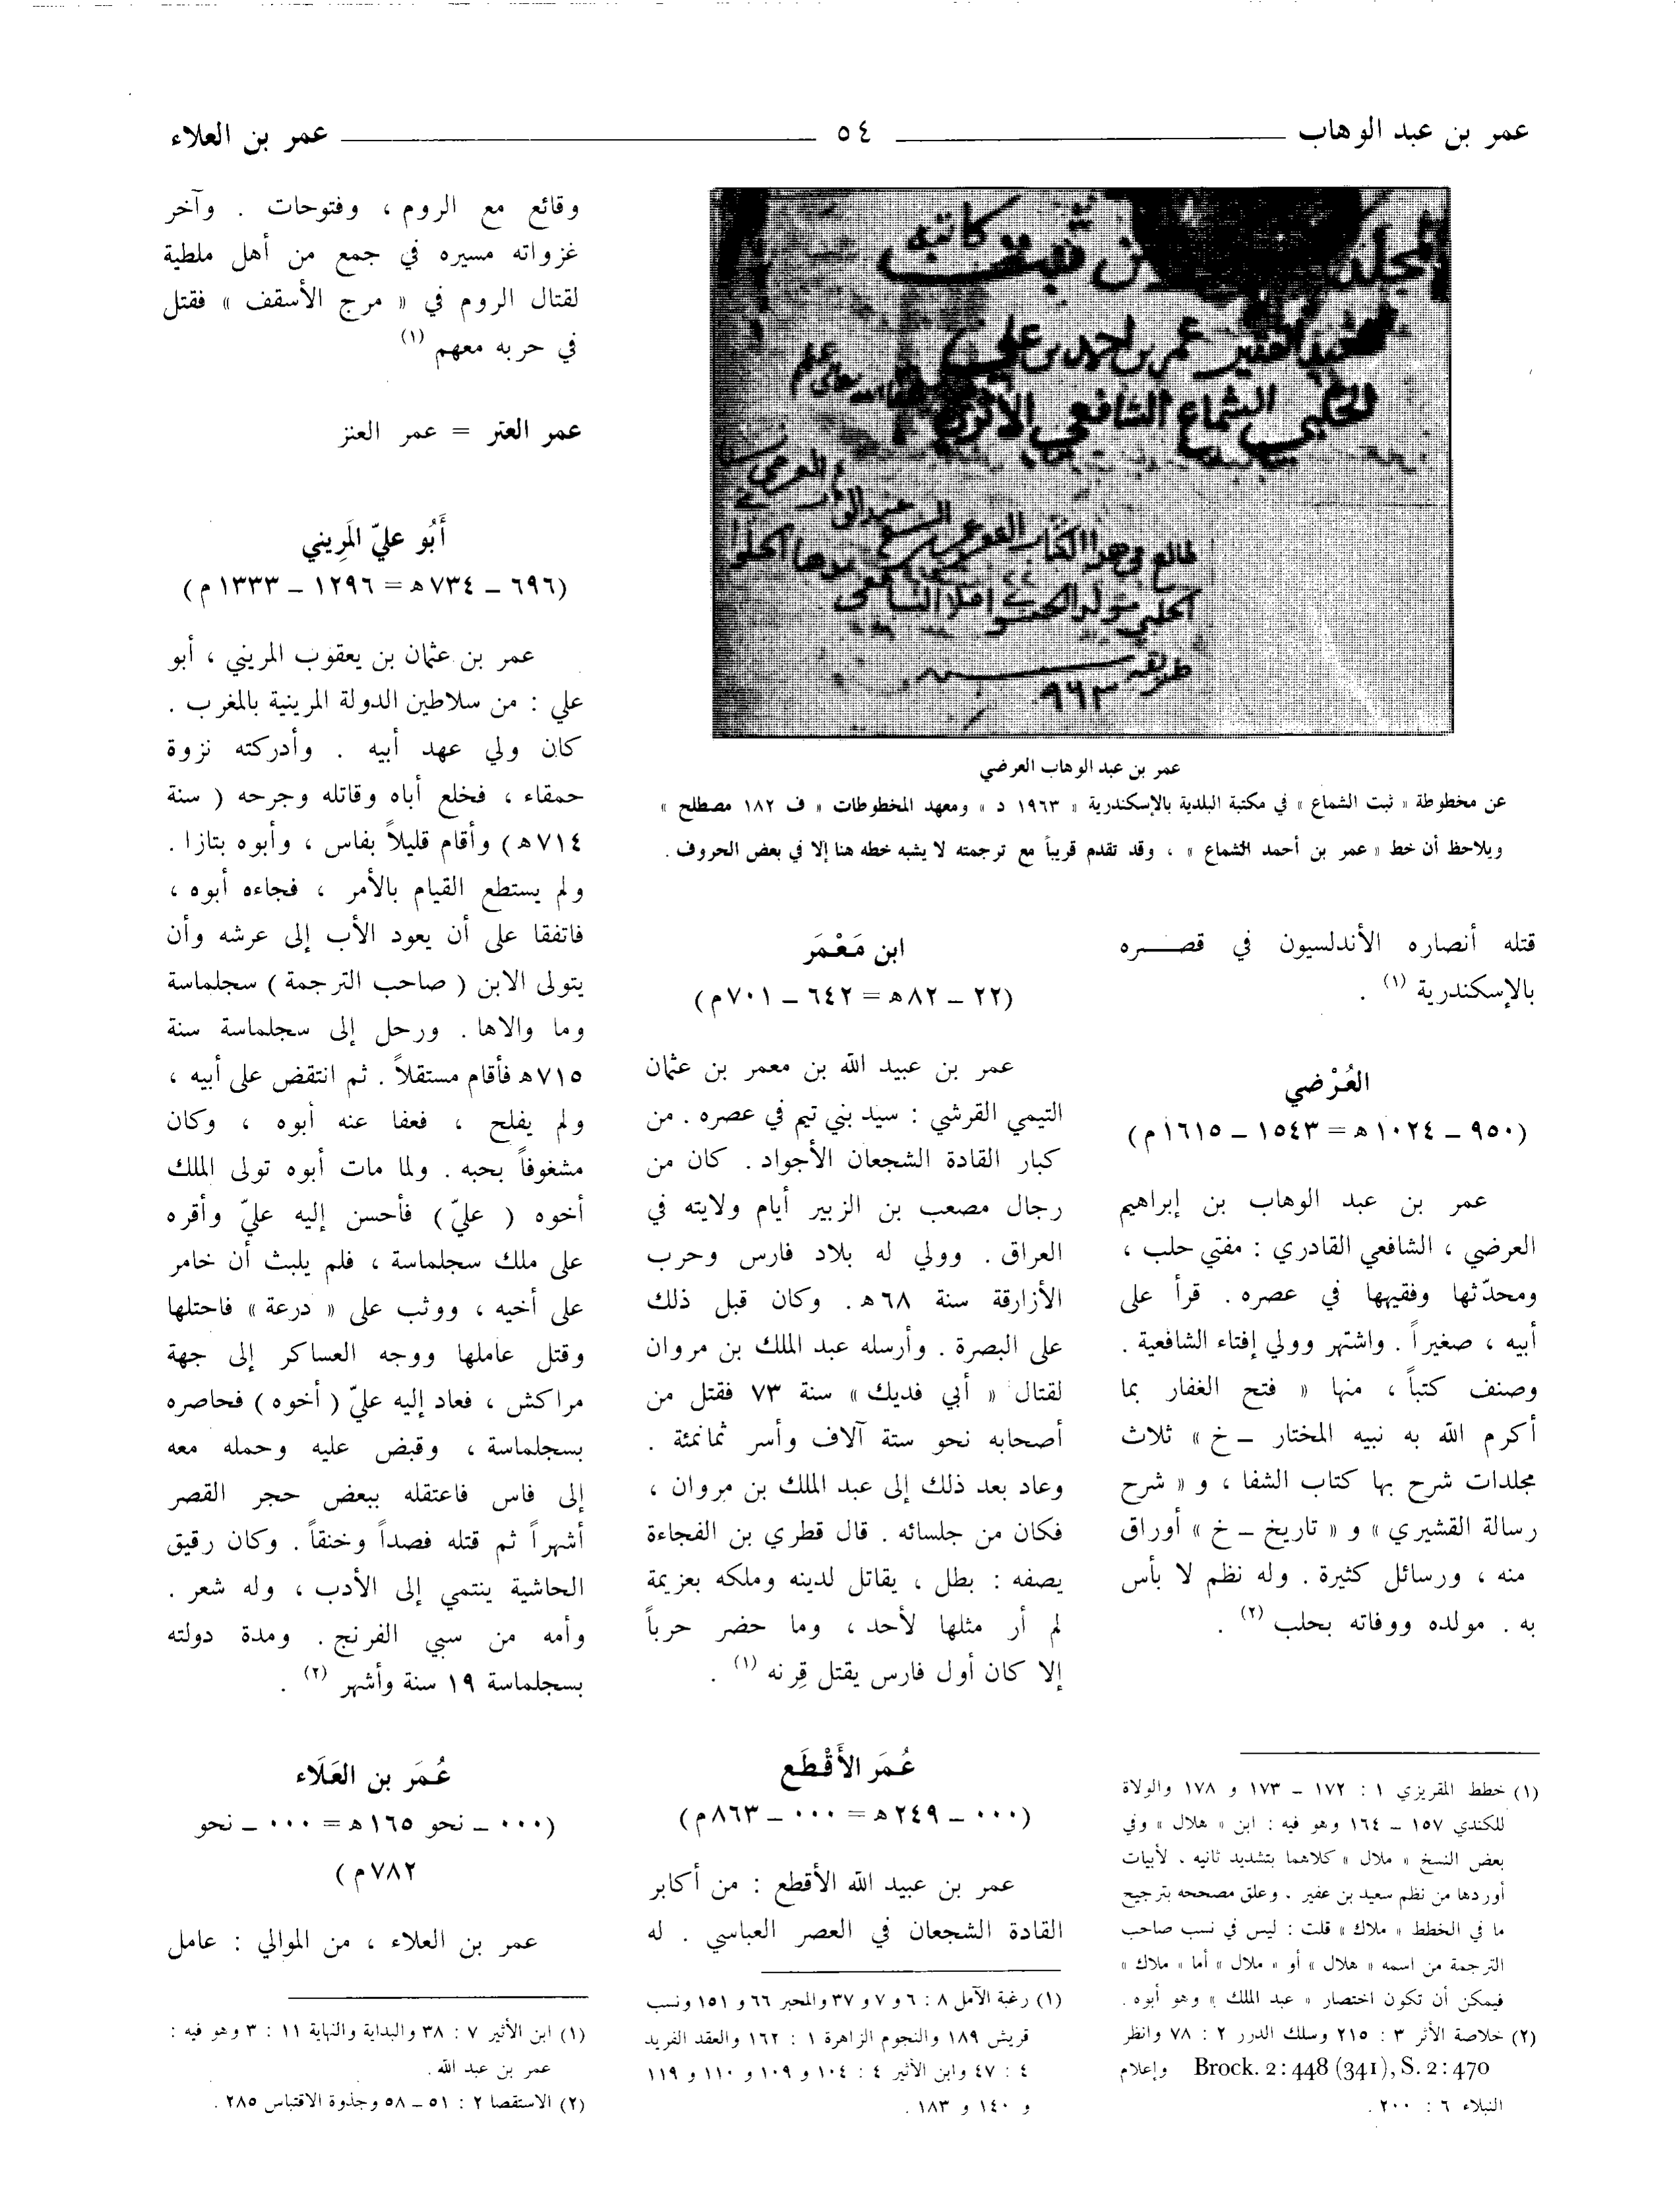 عمر بن عبد الوهاب ٥٤ عمر بن العلاء
كاتبه
عمر بن احمد بن علي
الحلبي الشماع الشافعي الأثري
طالع في هذا الكتاب
٩٦٣
عمر بن عبد الوهاب العرضي
عن مخطوطة « ثبت الشماع » في مكتبة البلدية بالإسكندرية « ١٩٦٣ د » ومعهد المخطوطات « ف ١٨٢ مصطلح »
ويلاحظ أن خط « عمر بن أحمد الشماع » ، وقد تقدم قريباً مع ترجمته لا يشبه خطه هنا إلا في بعض الحروف .
قتله أنصاره الأندلسيون في قصـــره
بالإسكندرية (١) .
العُرْضي
(٩٥٠ – ١٠٢٤ ه = ١٥٤٣ – ١٦١٥ م)
عمر بن عبد الوهاب بن إبراهيم
العرضي ، الشافعي القادري : مفتي حلب ،
ومحدّثها وفقيهها في عصره . قرأ على
أبيه ، صغيراً . واشتهر وولي إفتاء الشافعية .
وصنف كتباً ، منها « فتح الغفار بما
أكرم الله به نبيه المختار – خ » ثلاث
مجلدات شرح بها كتاب الشفا ، و « شرح
رسالة القشيري » و « تاريخ – خ » أوراق
منه ، ورسائل كثيرة . وله نظم لا بأس
به . مولده ووفاته بحلب (٢) .
(١) خطط المقريزي ١ : ١٧٢ – ١٧٣ و ١٧٨ والولاة
للكندي ١٥٧ – ١٦٤ وهو فيه : ابن « هلال » وفي
بعض النسخ « ملال » كلاهما بتشديد ثانيه . لأبيات
أوردها من نظم سعيد بن عفير . وعلق مصححه بترجيح
ما في الخطط « ملاك » قلت : ليس في نسب صاحب
الترجمة من اسمه « هلال » أو « ملال » أما « ملاك »
فيمكن أن تكون اختصار « عبد الملك » وهو أبوه .
(٢) خلاصة الأثر ٣ : ٢١٥ وسلك الدرر ٢ : ٧٨ وانظر
Brock. 2:448 (341), S. 2:470 وإعلام
النبلاء ٦ : ٢٠٠ .
ابن مَعْمَر
(٢٢ – ٨٢ ه = ٦٤٢ – ٧٠١ م)
عمر بن عبيد الله بن معمر بن عثمان
التيمي القرشي : سيّد بني تيم في عصره . من
كبار القادة الشجعان الأجواد . كان من
رجال مصعب بن الزبير أيام ولايته في
العراق . وولي له بلاد فارس وحرب
الأزارقة سنة ٦٨ ه . وكان قبل ذلك
على البصرة . وأرسله عبد الملك بن مروان
لقتال « أبي فديك » سنة ٧٣ فقتل من
أصحابه نحو ستة آلاف وأسر ثمانمئة .
وعاد بعد ذلك إلى عبد الملك بن مروان ،
فكان من جلسائه . قال قطري بن الفجاءة
يصفه : بطل ، يقاتل لدينه وملكه بعزيمة
لم أر مثلها لأحد ، وما حضر حرباً
إلا كان أول فارس يقتل قِرنه (١) .
عُمَر الأَقْطَع
(٠٠٠ – ٢٤٩ ه = ٠٠٠ – ٨٦٣ م)
عمر بن عبيد الله الأقطع : من أكابر
القادة الشجعان في العصر العباسي . له
(١) رغبة الآمل ٨ : ٦ و ٧ و ٣٧ والمحبر ٦٦ و ١٥١ ونسب
قريش ١٨٩ والنجوم الزاهرة ١ : ١٦٢ والعقد الفريد
٤ : ٤٧ وابن الأثير ٤ : ١٠٤ و ١٠٩ و ١١٠ و ١١٩
و ١٤٠ و ١٨٣ .
وقائع مع الروم ، وفتوحات . وآخر
غزواته مسيره في جمع من أهل ملطية
لقتال الروم في « مرج الأسقف » فقتل
في حربه معهم (١)
عمر العتر = عمر العنز
أَبُو عليّ المَرِيني
(٦٩٦ – ٧٣٤ ه = ١٢٩٦ – ١٣٣٣ م)
عمر بن عثمان بن يعقوب المريني ، أبو
علي : من سلاطين الدولة المرينية بالمغرب .
كان ولي عهد أبيه . وأدركته نزوة
حمقاء ، فخلع أباه وقاتله وجرحه ( سنة
٧١٤ ه ) وأقام قليلاً بفاس ، وأبوه بتازا .
ولم يستطع القيام بالأمر ، فجاءه أبوه ،
فاتفقا على أن يعود الأب إلى عرشه وأن
يتولى الابن ( صاحب الترجمة ) سجلماسة
وما والاها . ورحل إلى سجلماسة سنة
٧١٥ ه فأقام مستقلاً . ثم انتقض على أبيه ،
ولم يفلح ، فعفا عنه أبوه ، وكان
مشغوفاً بحبه . ولما مات أبوه تولى الملك
أخوه ( عليّ ) فأحسن إليه عليّ وأقره
على ملك سجلماسة ، فلم يلبث أن خامر
على أخيه ، ووثب على « درعة » فاحتلها
وقتل عاملها ووجه العساكر إلى جهة
مراكش ، فعاد إليه عليّ ( أخوه ) فحاصره
بسجلماسة ، وقبض عليه وحمله معه
إلى فاس فاعتقله ببعض حجر القصر
أشهراً ثم قتله فصداً وخنقاً . وكان رقيق
الحاشية ينتمي إلى الأدب ، وله شعر .
وأمه من سبي الفرنج . ومدة دولته
بسجلماسة ١٩ سنة وأشهر (٢) .
عُمَر بن العَلَاء
(٠٠٠ – نحو ١٦٥ ه = ٠٠٠ – نحو
٧٨٢ م)
عمر بن العلاء ، من الموالي : عامل
(١) ابن الأثير ٧ : ٣٨ والبداية والنهاية ١١ : ٣ وهو فيه :
عمر بن عبد الله .
(٢) الاستقصا ٢ : ٥١ – ٥٨ وجذوة الاقتباس ٢٨٥ .